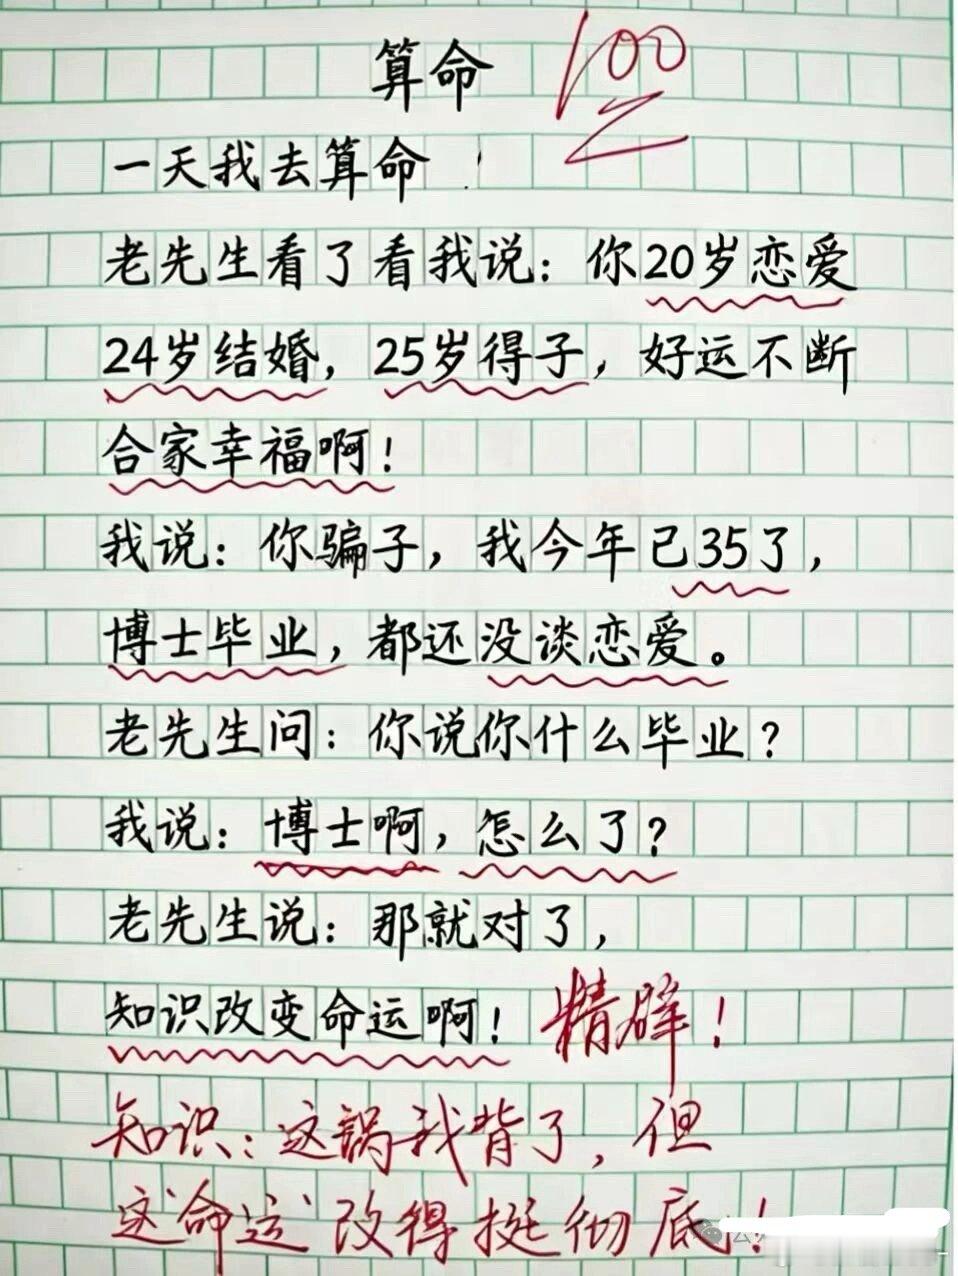 算命
100
一天我去算命
老先生看了看我说：你20岁恋爱
24岁结婚，25岁得子，好运不断
合家幸福啊！
我说：你骗子，我今年已35了，
博士毕业，都还没谈恋爱。
老先生问：你说你什么毕业？
我说：博士啊，怎么了？
老先生说：那就对了，
知识改变命运啊！
精辟！
知识：这锅我背了，但
这‘命运’改得挺彻底！